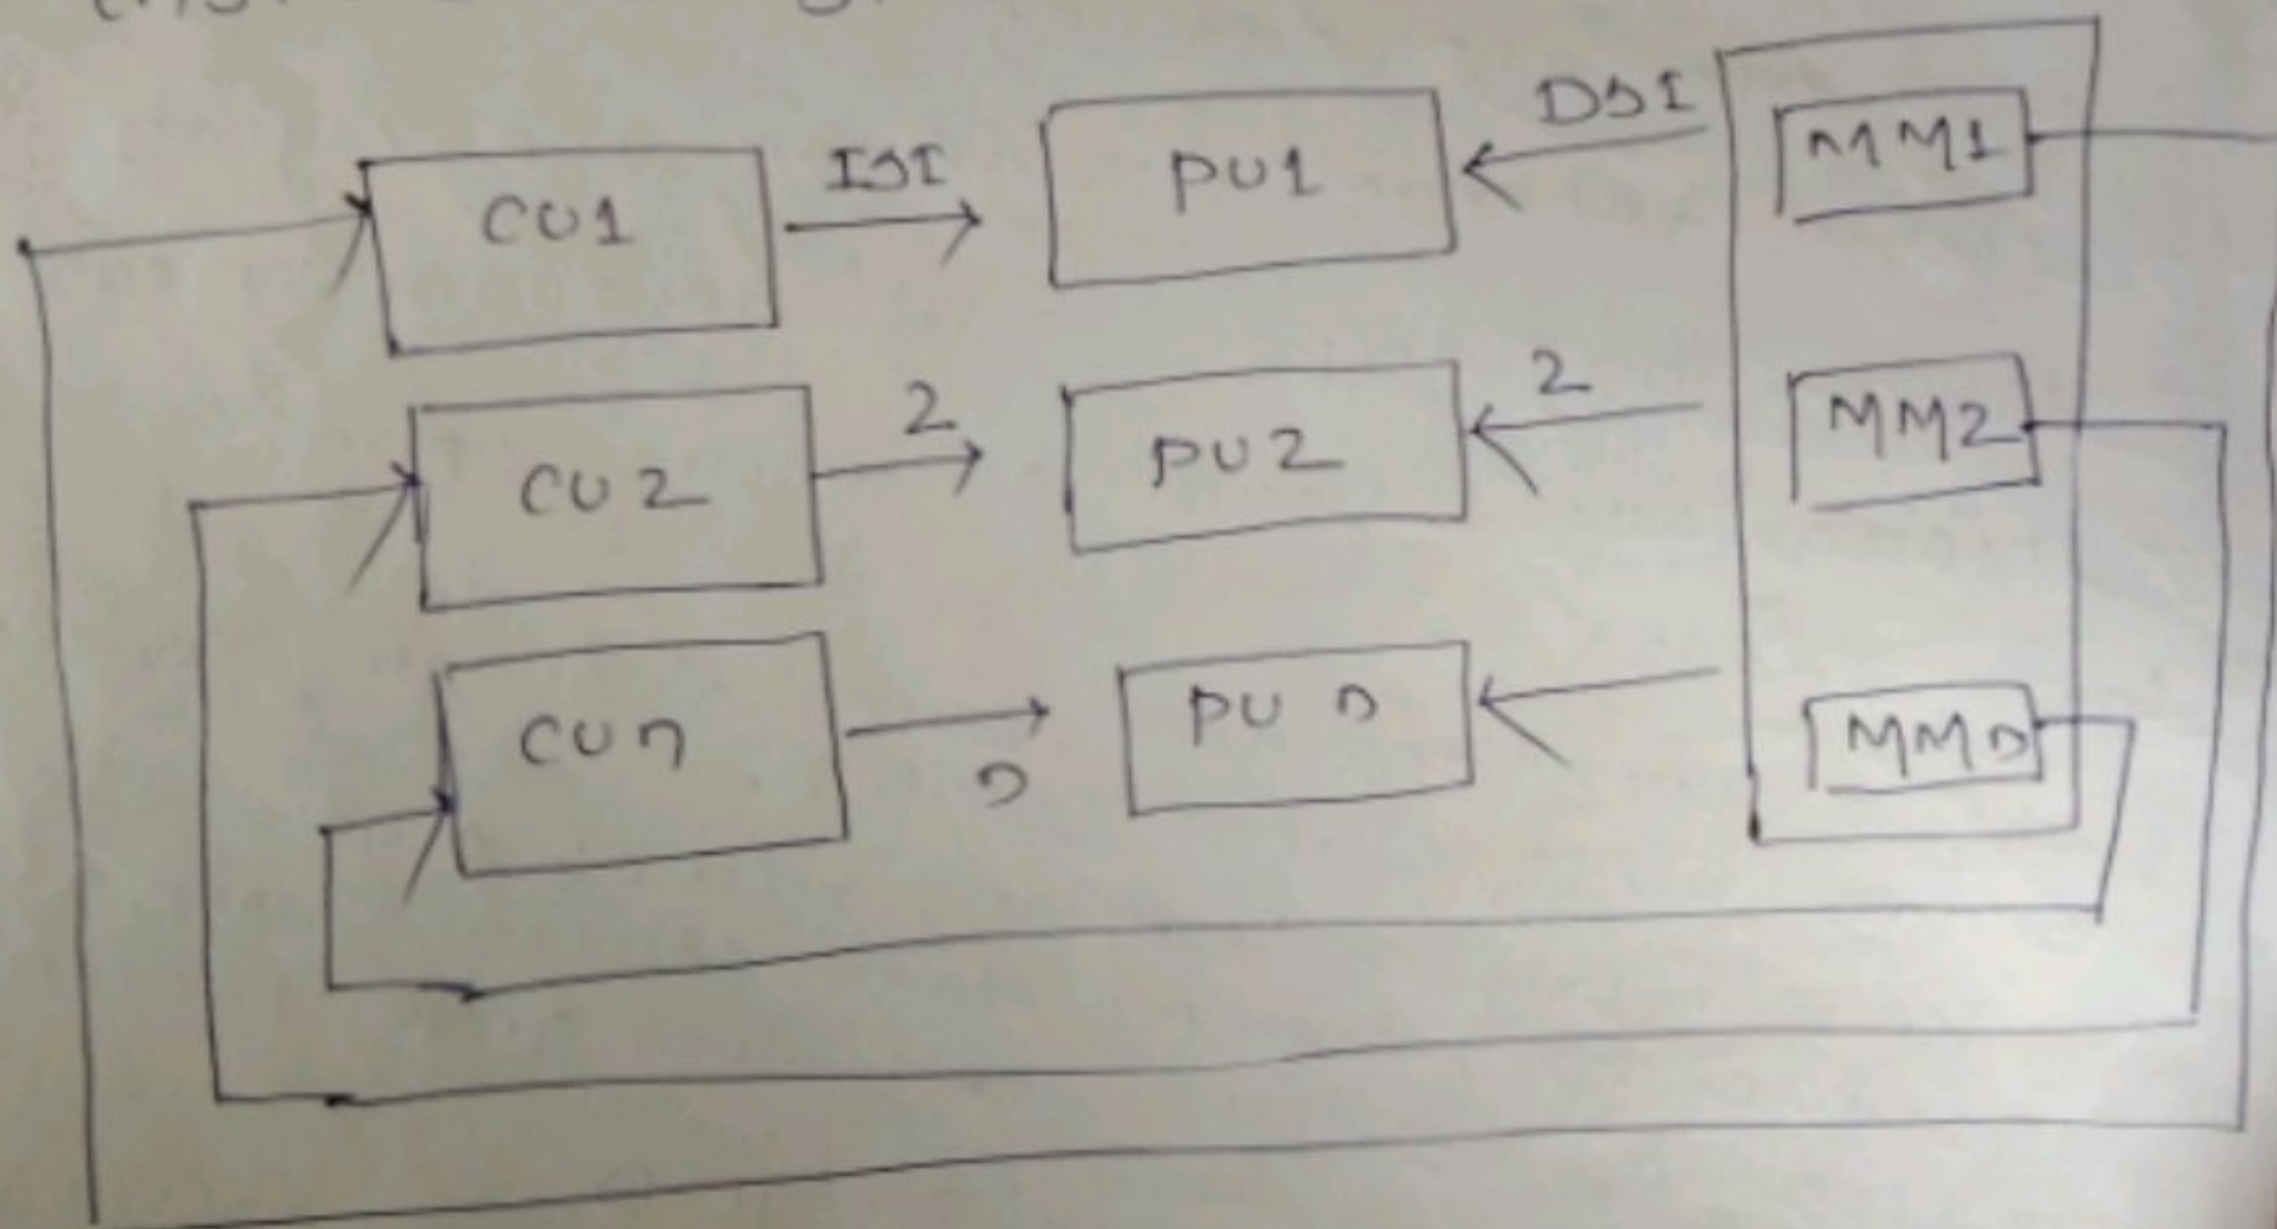 CU1 IS1 PU1 DS1 MM1
CU2 2 PU2 2 MM2
CUn n PUn MMn